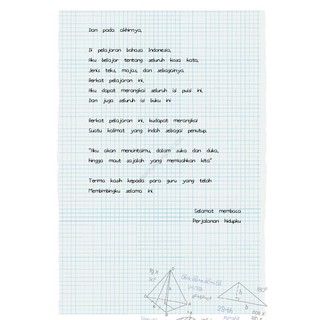 Dan pada akhirnya,
Di pelajaran bahasa Indonesia,
Aku belajar tentang seluruh kosa kata,
Jenis teks, majas, dan sebagainya.
Berkat pelajaran ini,
Aku dapat merangkai seluruh isi puisi ini,
Dan juga seluruh isi buku ini
Berkat pelajaran ini, kudapat merangkai
Suatu kalimat yang indah sebagai penutup.
"Aku akan mencintaimu, dalam suka dan duka,
hingga maut sajalah yang memisahkan kita"
Terima kasih kepada para guru yang telah
Membimbingku selama ini.
Selamat membaca
Perjalanan hidupku